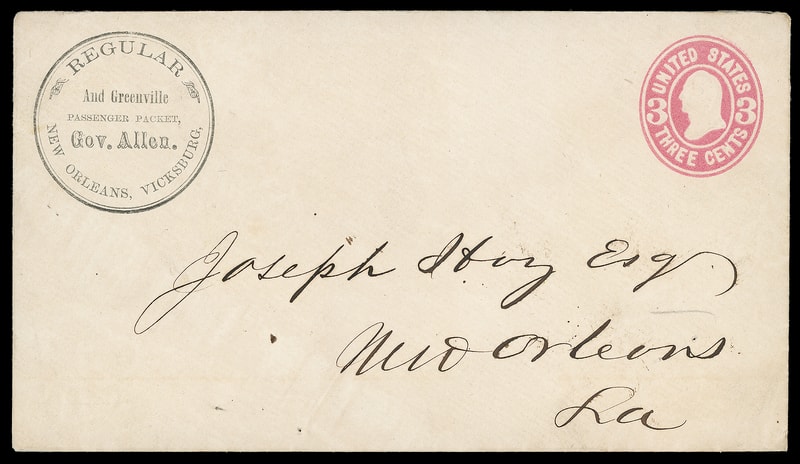 REGULAR
And Greenville
PASSENGER PACKET,
Gov. Allen.
NEW ORLEANS, VICKSBURG,
UNITED STATES
3 3
THREE CENTS
Joseph Hoy Esqr
New Orleans
La